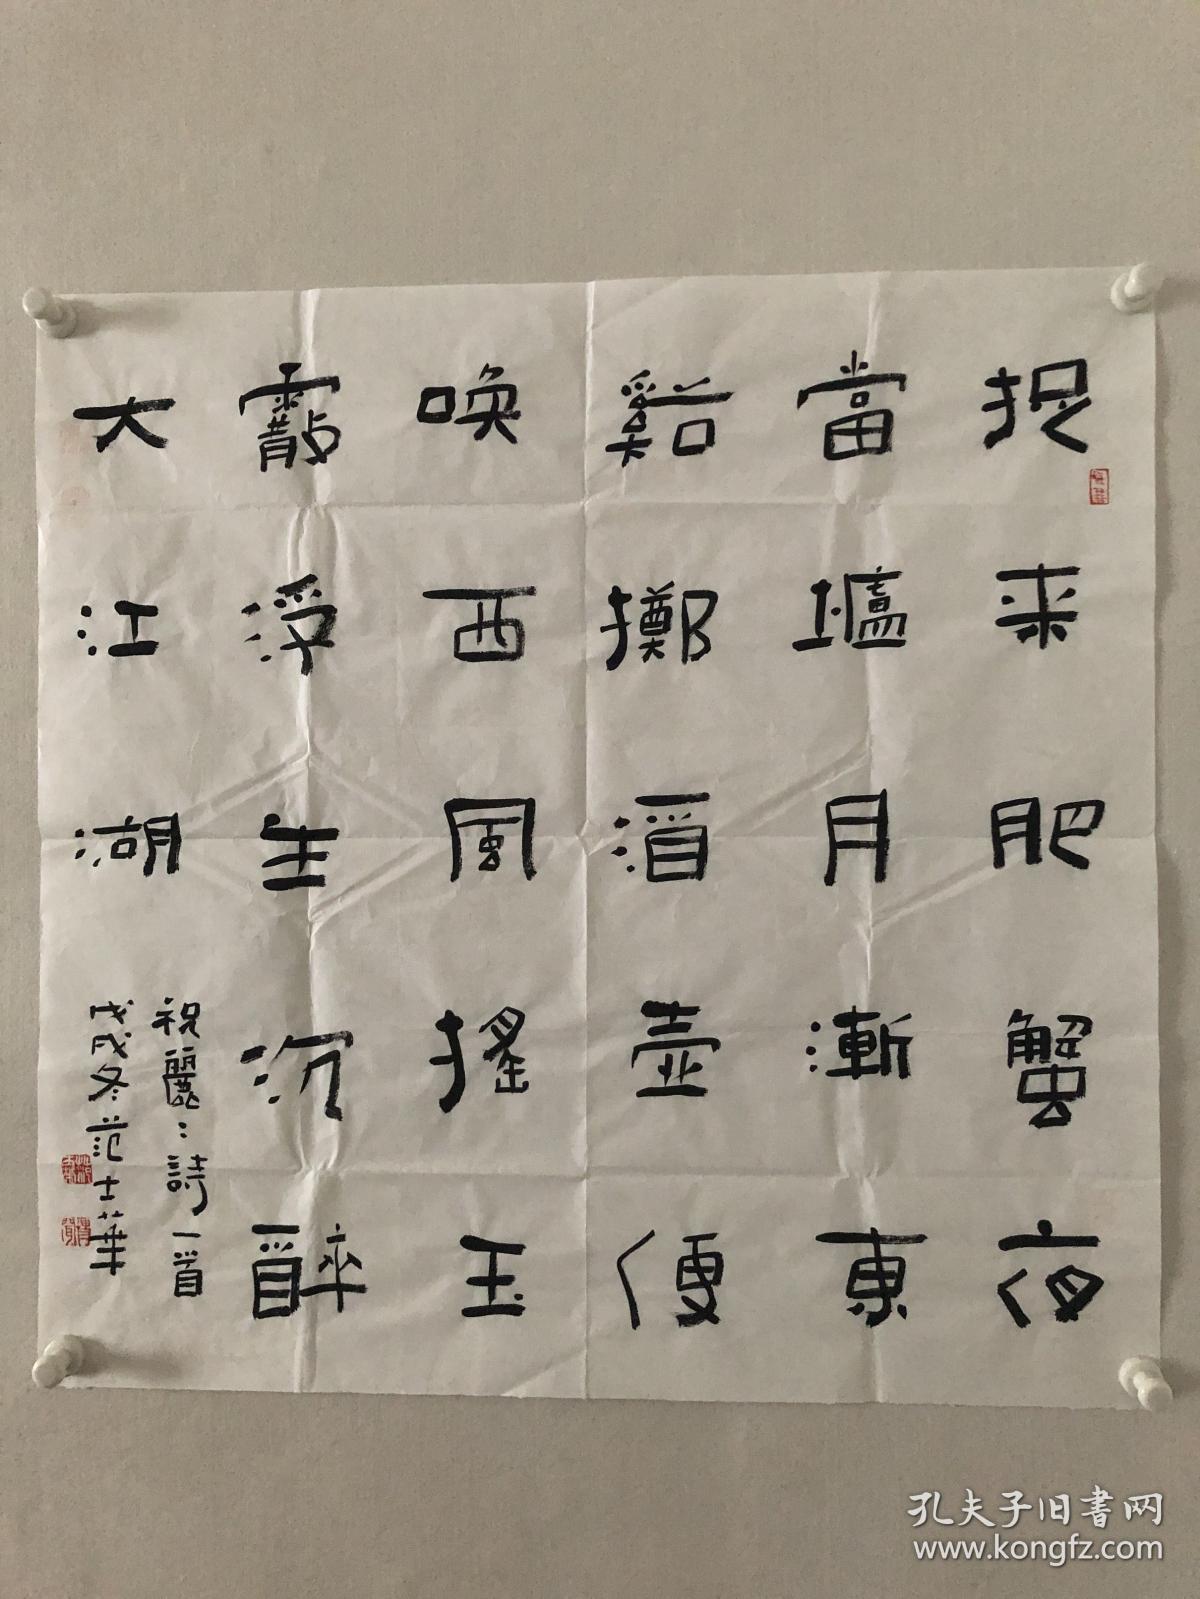 捉来肥蟹夜
當壚月漸東
谿擲酒壺便
喚西風搖玉
露浮生沉醉
大江湖
祝麗〻詩一首
戊戌冬范士華
孔夫子旧书网
www.kongfz.com